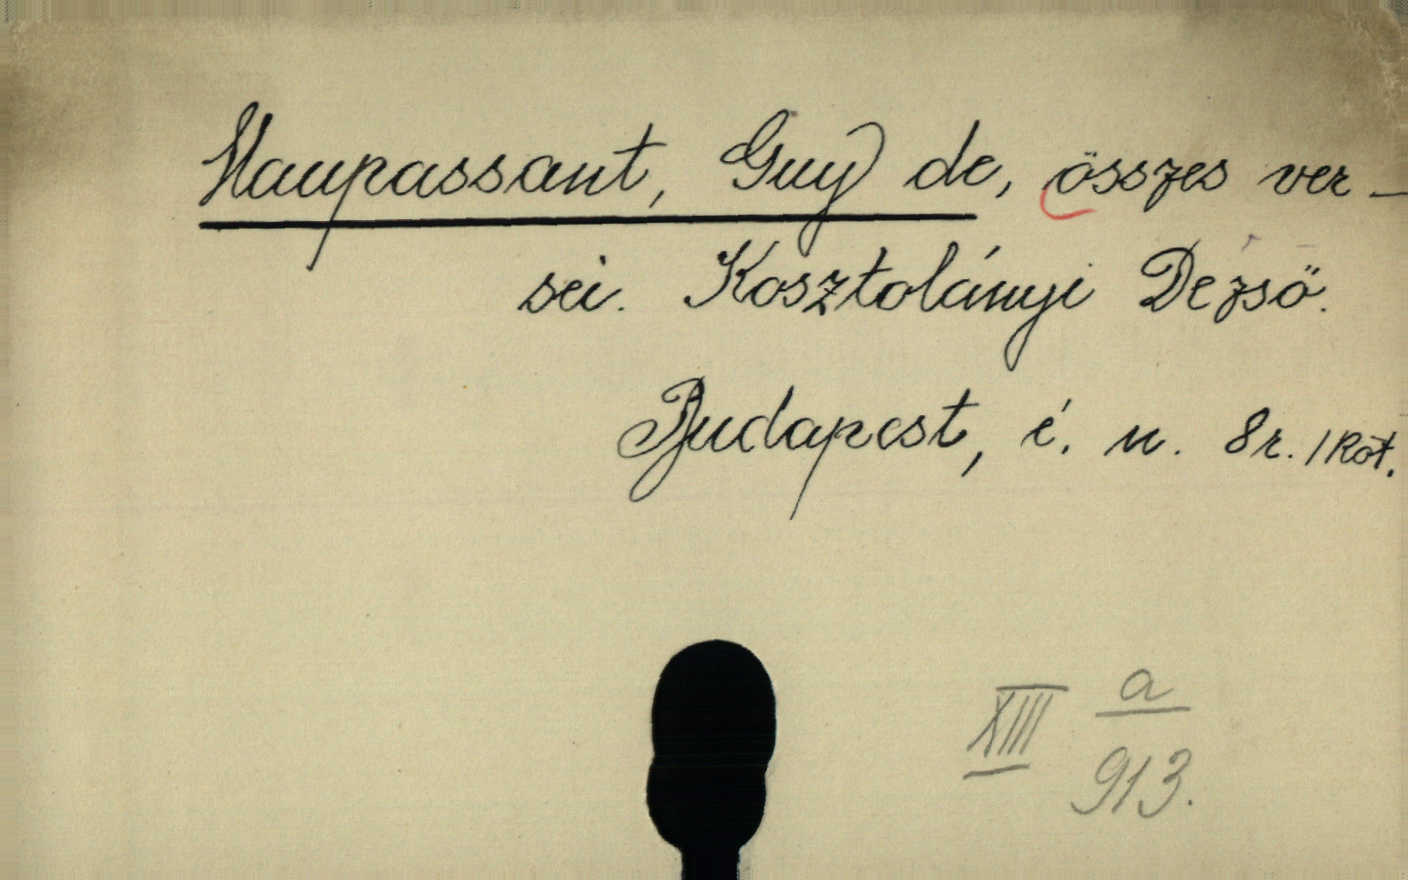 Maupassant, Guy de, összes ver-
sei. Kosztolányi Dezső.
Budapest, é. n. 8r. 1 Köt.
XIII a
913.